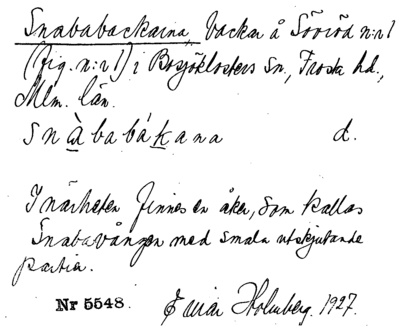 Snababackarna, backar å Söviöd n:r 1
(fig. n:r 1) i Bosjöklosters Sn., Frosta hd.,
Mlm. län.
snàbabákana d.
I närheten finnes en åker, som kallas
Snabavången med smala utskjutande
partier.
Nr 5548. Einar Holmberg. 1927.